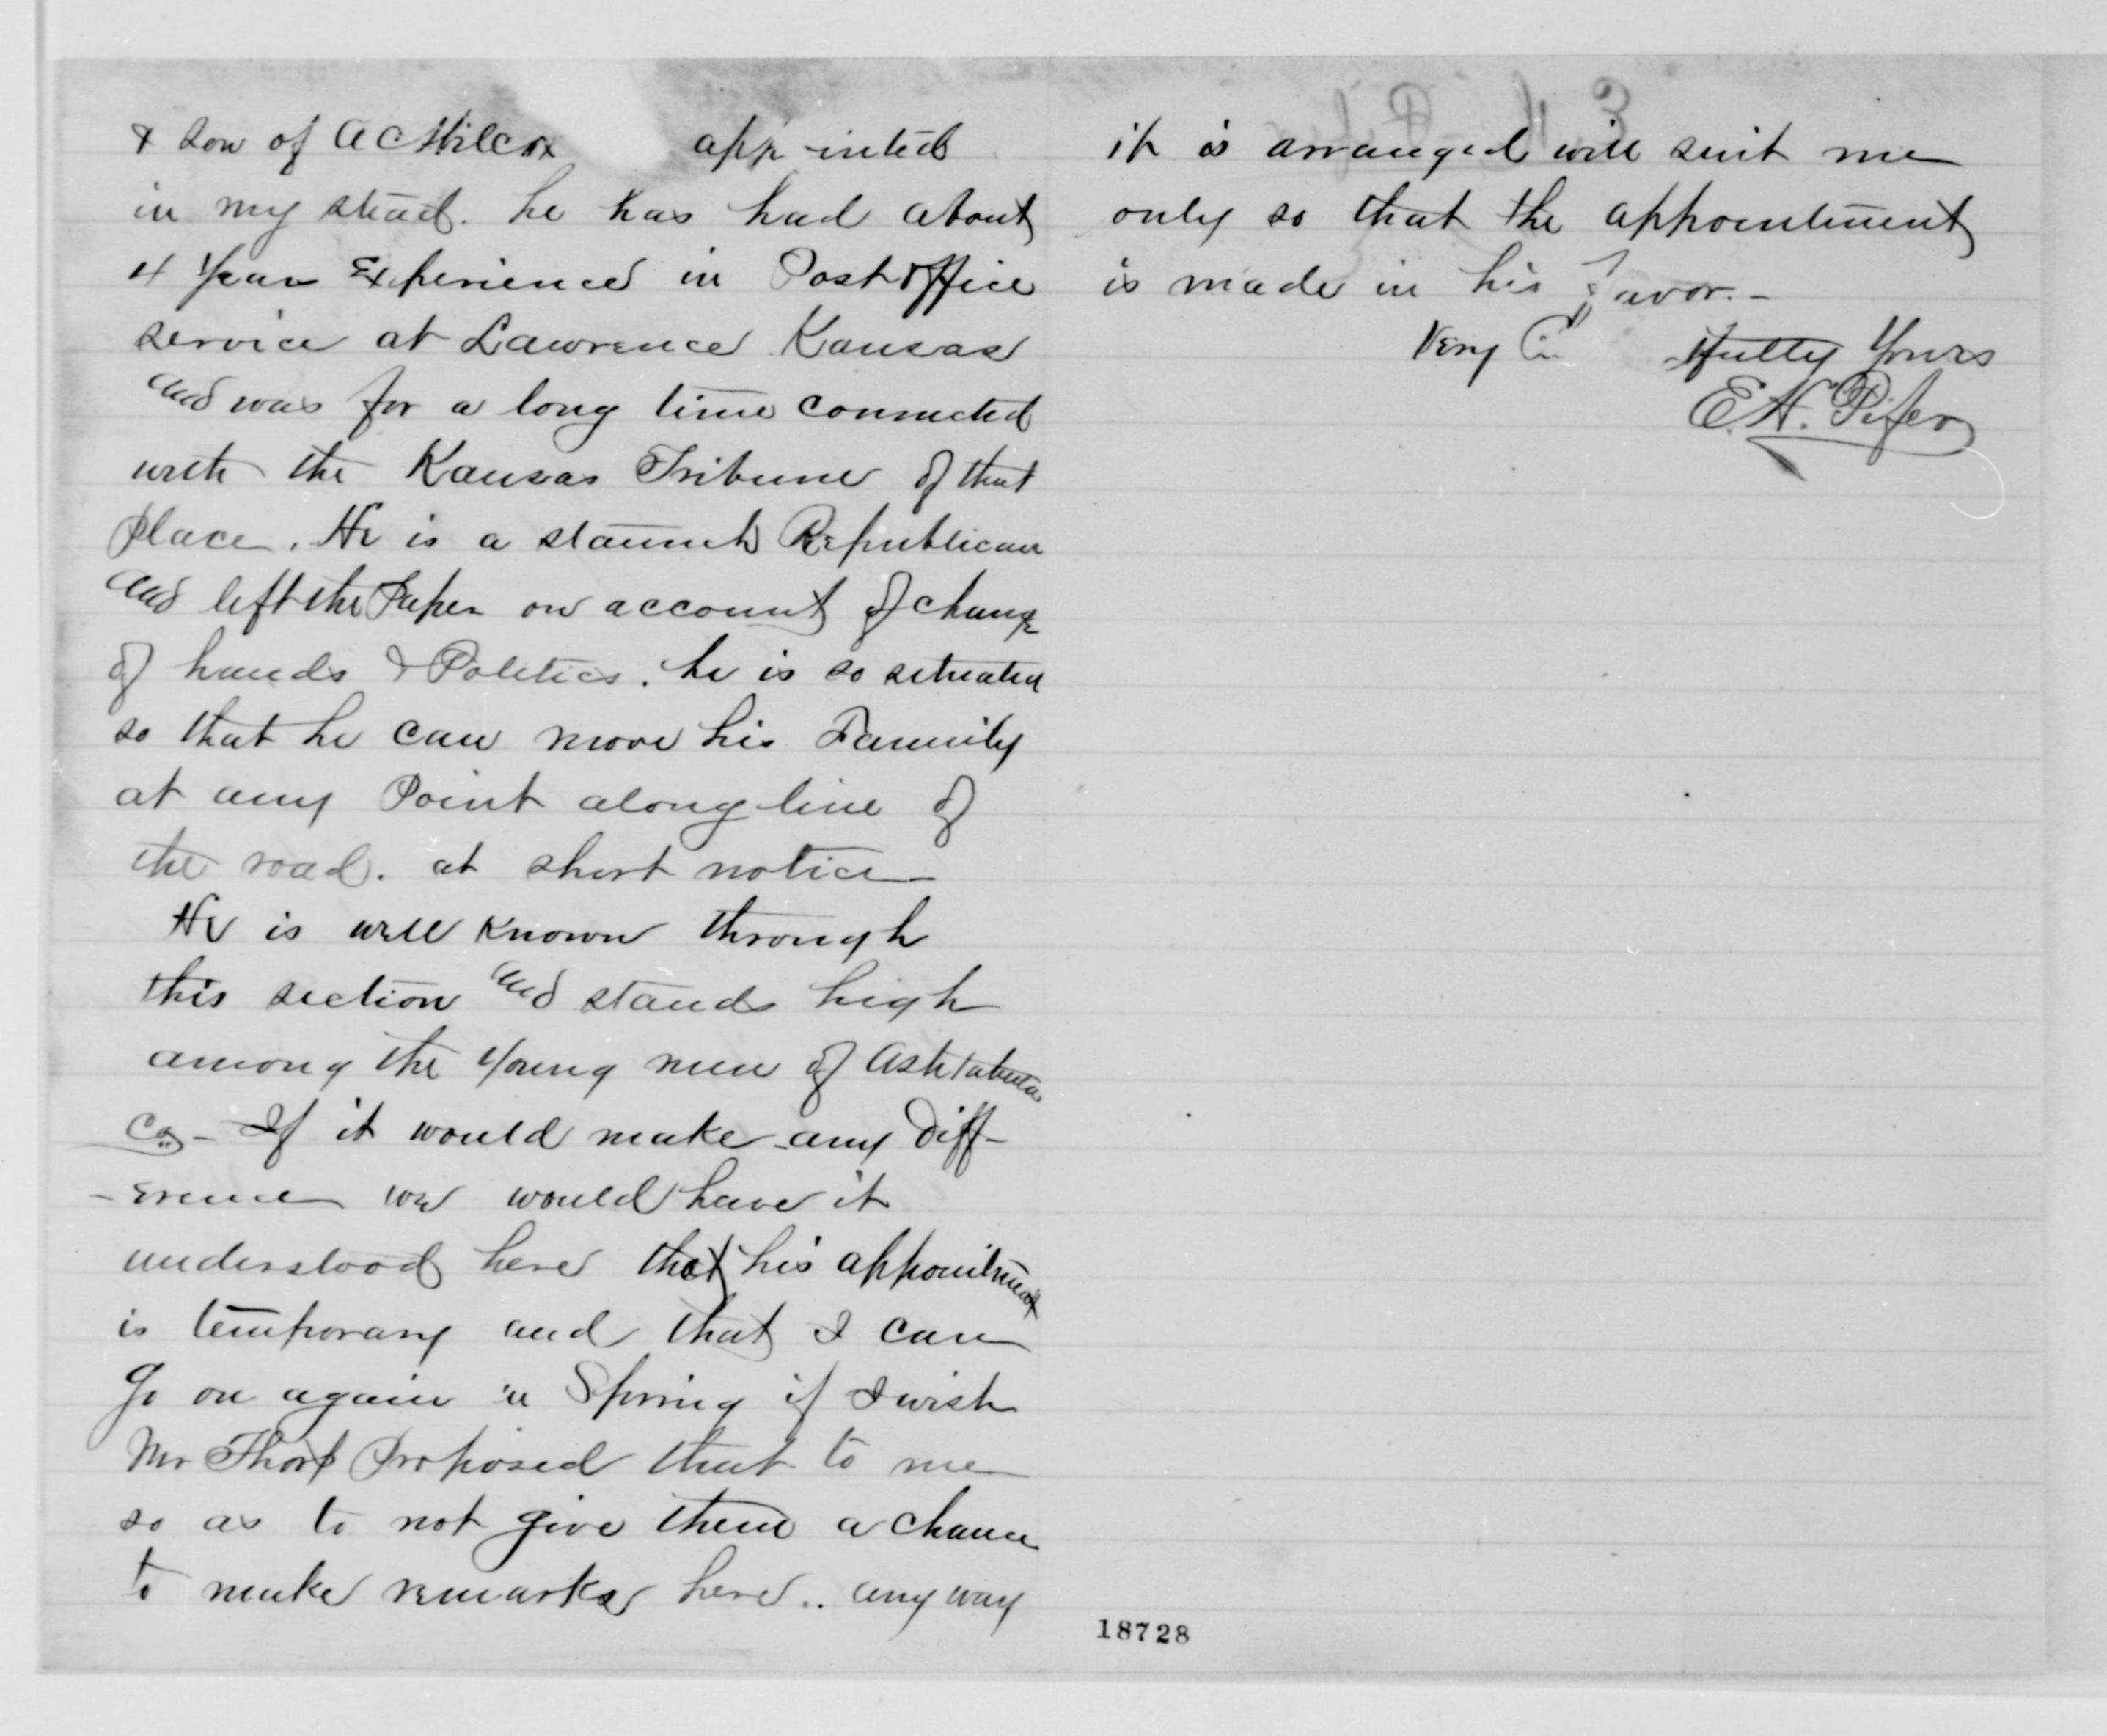 & son of A C Wilcox appointed
in my stead. he has had about
4 Year Experience in Post office
service at Lawrence Kansas
and was for a long time connected
with the Kansas Tribune of that
place. He is a staunch Republican
and left the Paper on account of change
of hands & Politics. he is so situated
so that he can move his Family
at any Point along line of
the road. at short notice
He is well known through
this section and stands high
among the young men of Ashtabula
Co - If it would make any Diff-
-erence we would have it
understood here that his appointment
is temporary and that I can
go on again in Spring if I wish
Mr Thorp Proposed that to me
so as to not give them a chance
to make remarks here.. any way
it is arranged will suit me
only so that the appointment
is made in his Favor. -
Very fully Yours
E. H. Pifer
18728